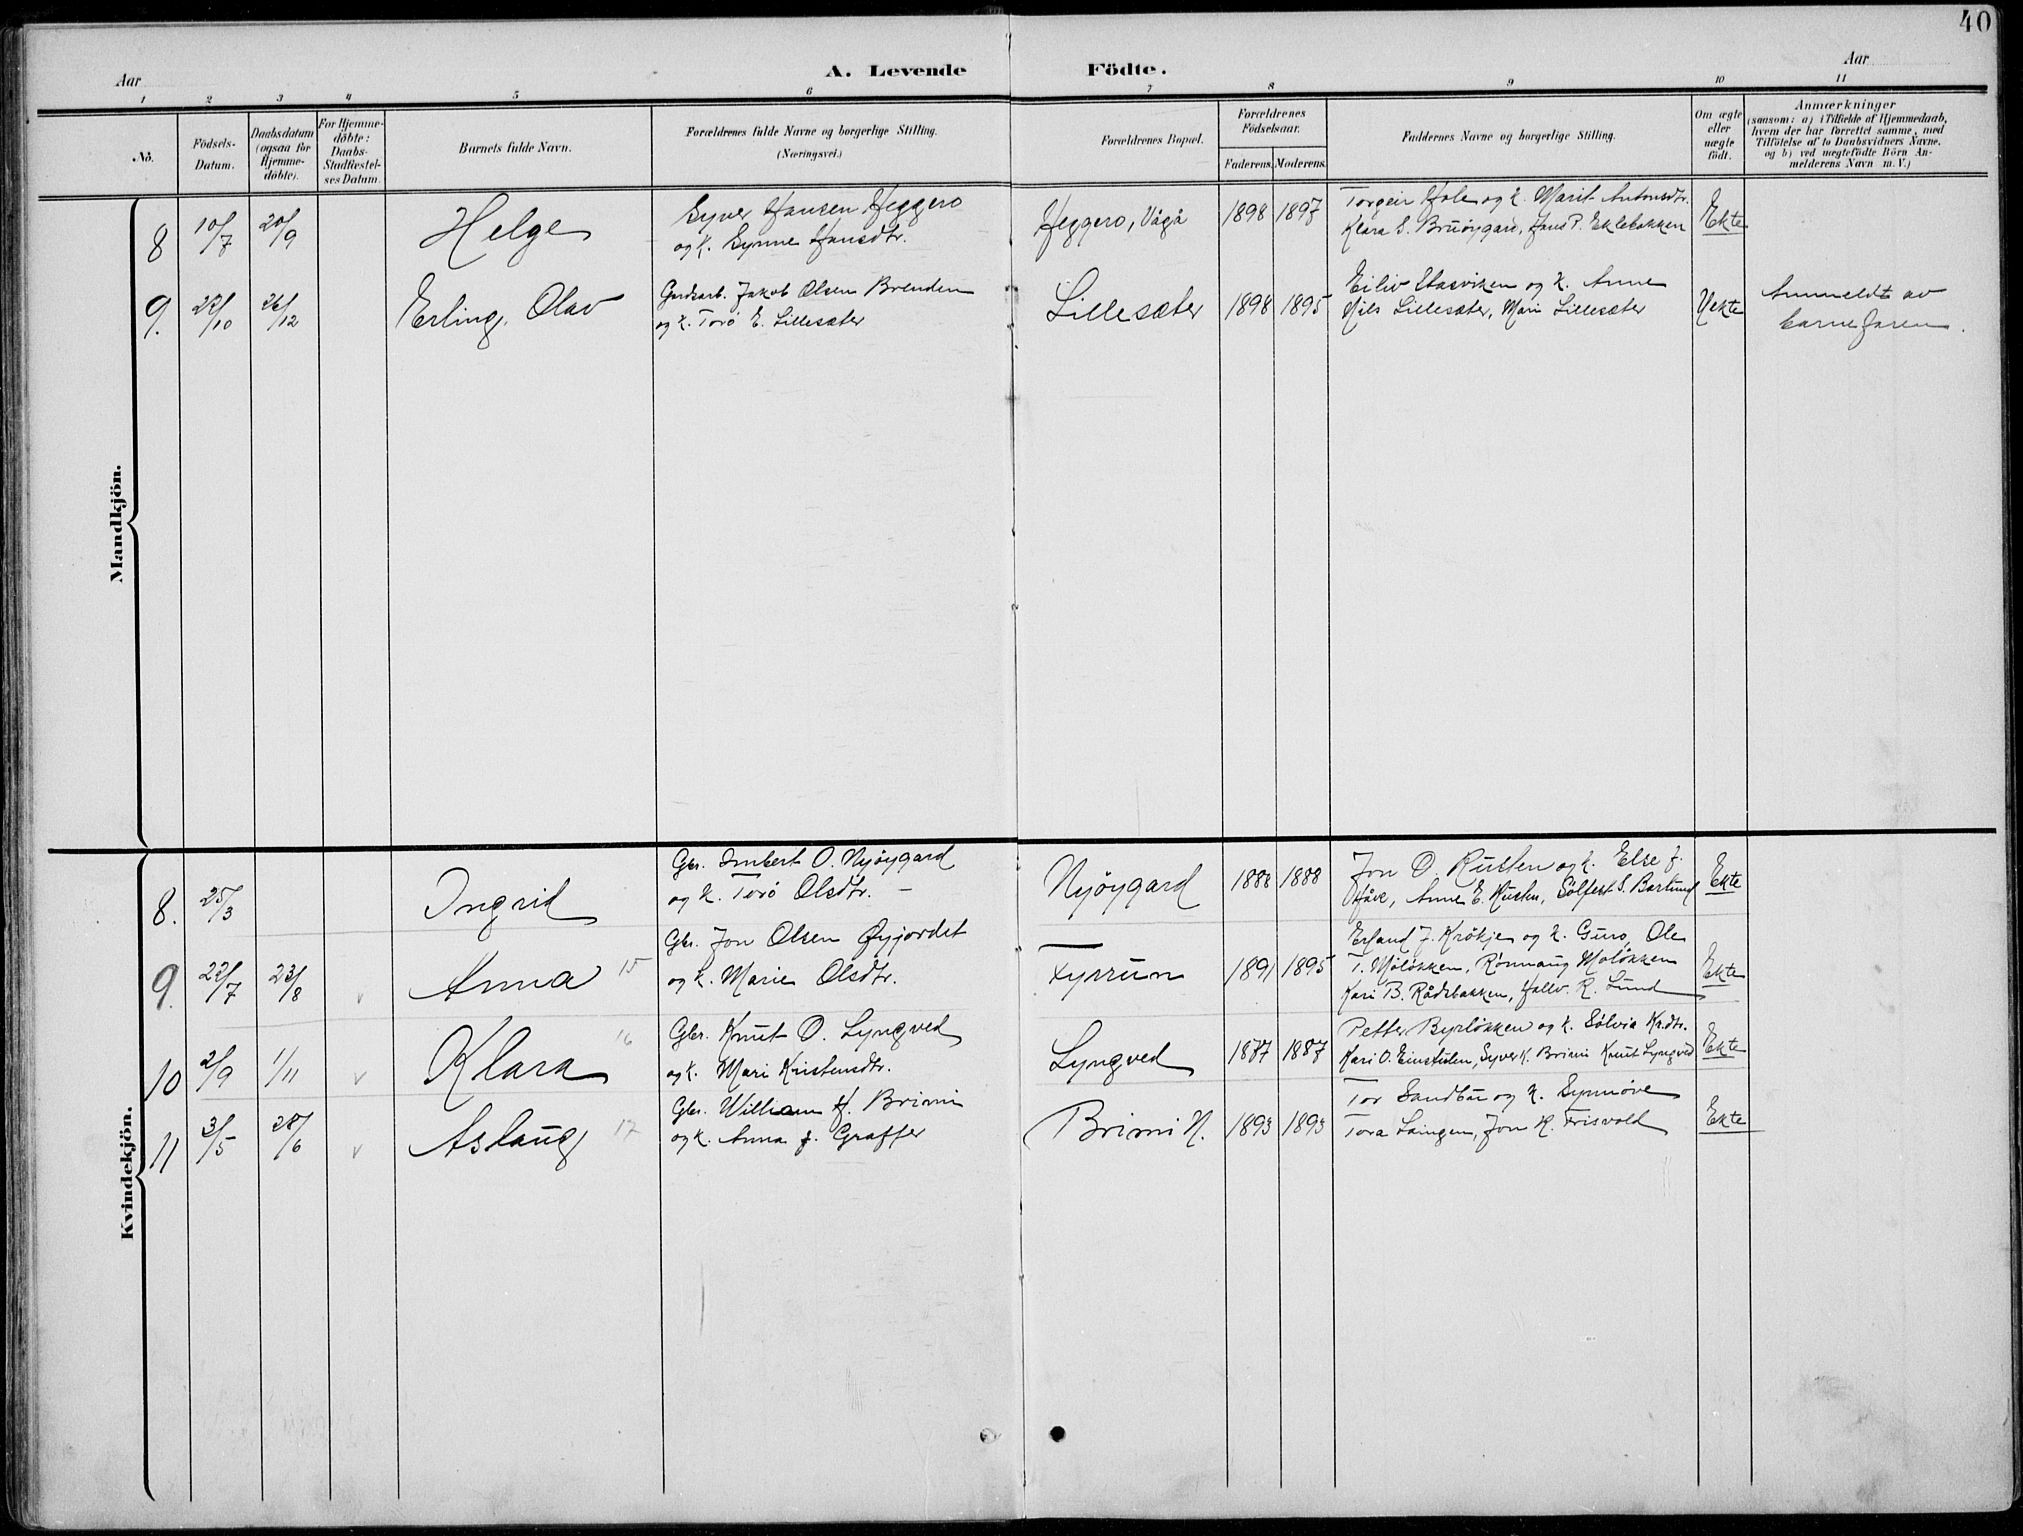 40
Aar
A. Levende
Födte.
Aar
1 2 3 4 5 6 7 8 9 10 11
No.
Födsels-
Datum.
Daabsdatum
(ogsaa for
Hjemme-
döbte).
For Hjemme-
döbte:
Daabs-
Stadfæstel-
ses Datum.
Barnets fulde Navn.
Forældrenes fulde Navne og borgerlige Stilling.
(Næringsvei.)
Forældrenes Bopæl.
Forældrenes
Födselsaar.
Faderens. Moderens.
Faddernes Navne og borgerlige Stilling.
Om ægte
eller
uægte
født.
Anmærkninger
(saasom: a) i Tilfælde af Hjemmedaab,
hvem der har forrettet samme, med
Tilföielse af to Daabsvidners Navne.
og b) ved uægtefödte Börn An-
melderens Navn m. V.)
Mandkjön.
8 10/7 20/9 Helge
Syver Hansen Heggero
og k. Synne Hansdtr.
Heggero, Vågå 1898 1897
Torgeir Hole og k. Marit Antonsdtr.
Klara S. Bruøygard, Hans P. Eklebakken
Ekte
9. 22/10 26/12 Erling Olav
Gardsarb. Jakob Olsen Brenden
og k. Torø E. Lillesæter
Lillesæter 1898 1895
Eiliv Stasviken og k. Anne
Nils Lillesæter, Mari Lillesæter
Uekte
Anmeldt av
barnefaren.
Kvindekjön.
8. 25/3 Ingrid
Gbr. Imbert O. Nyøygard
og k. Torø Olsdtr. –
Nyøygard 1888 1888
Jon O. Rusten og k. Else J.
Håve, Anne E. Rusten, Sølfest S. Barlund
Ekte
9. 22/7 23/8 v Anna 15
Gbr. Jon Olsen Øyjordet
og k. Marie Olsdtr.
1891 1895
Erland J. Krøkje og k. Guro, Ole
T. Moløkken, Rønnaug Moløkken
Kari B. Rådsbakken, Hallv. R. Lund
Ekte
10 2/9 1/11 v Klara 16
Gbr. Knut O. Lyngved
og k. Mari Kristensdtr.
Lyngved 1887 1887
Petter Byrløkken og k. Sølvia Kr.dtr.
Kari O. Einstulen, Syver K. Brimi Knut Lyngved
Ekte
11 3/5 28/6 v Aslaug 17
Gbr. William H. Brimi
og k. Anna J. Graffer
Brimi N. 1893 1893
Tor Sandbu og k. Synnøve
Tora Laingen, Jon K. Frisvold
Ekte